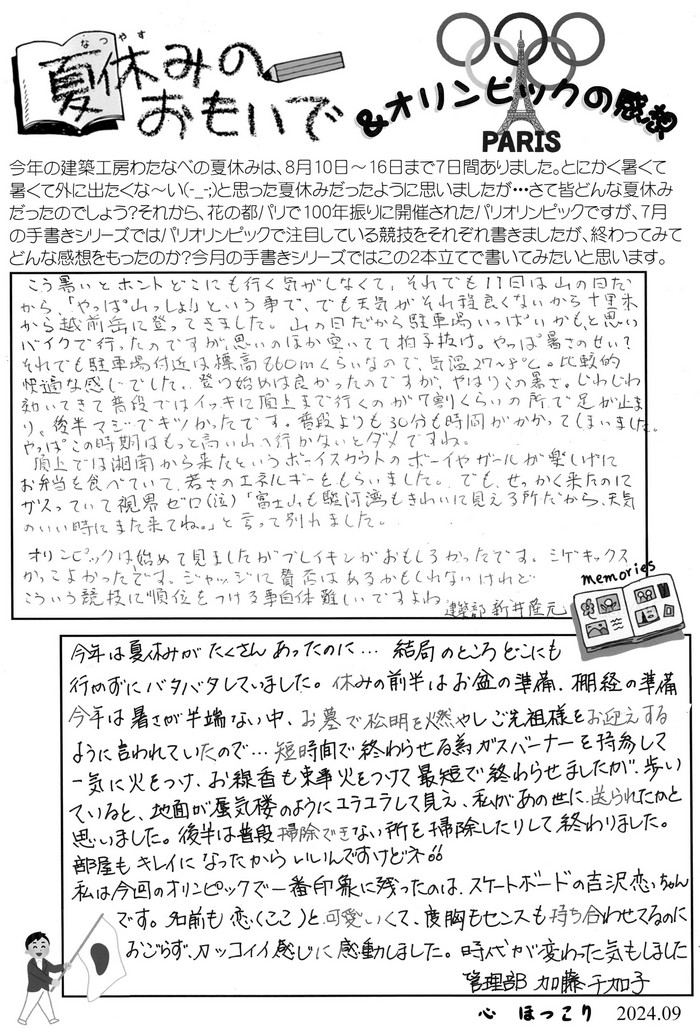 なつやす
夏休みの
おもいで
&オリンピックの感想
PARIS
今年の建築工房わたなべの夏休みは、8月10日～16日まで7日間ありました。とにかく暑くて
暑くて外に出たくな～い(-_-;)と思った夏休みだったように思いましたが…さて皆どんな夏休み
だったのでしょう?それから、花の都パリで100年振りに開催されたパリオリンピックですが、7月
の手書きシリーズではパリオリンピックで注目している競技をそれぞれ書きましたが、終わってみて
どんな感想をもったのか?今月の手書きシリーズではこの2本立てで書いてみたいと思います。
こう暑いとホントどこにも行く気がしなくて、それでも11日は山の日だ
から、「やっぱ山っしょ!」という事で、でも天気がそれ程良くないから十里木
から越前岳に登ってきました。山の日だから駐車場いっぱいかもと思い
バイクで行ったのですが、思いのほか空いてて拍子抜け。やっぱ暑さのせい?
それでも駐車場付近は標高860mくらいなので、気温27～8℃。比較的
快適な感じでした。登り始めは良かったのですが、やはりこの暑さ。じわじわ
効いてきて普段ではイッキに頂上まで行くのが7割くらいの所で足が止ま
り、後半マジでキツかったです。普段よりも30分も時間がかかってしまいました。
やっぱこの時期はもっと高い山へ行かないとダメですね。
頂上では湘南から来たというボーイスカウトのボーイやガールが楽しげに
お弁当を食べていて、若さのエネルギーをもらいました。でも、せっかく来たのに
ガスっていて視界ゼロ(泣)「富士山も駿河湾もきれいに見える所だから、天気
のいい時にまた来てね。」と言って別れました。
オリンピックは始めて見ましたがブレイキンがおもしろかったです。シゲキックス
かっこよかったです。ジャッジに賛否はあるかもしれないけれど
こういう競技に順位をつける事自体難しいですよね。 建築部 新井隆元
memories
今年は夏休みがたくさんあったのに… 結局のところどこにも
行かずにバタバタしていました。休みの前半はお盆の準備、棚経の準備
今年は暑さが半端ない中、お墓で松明を燃やしご先祖様をお迎えする
ように言われていたので…短時間で終わらせる為ガスバーナーを持参して
一気に火をつけ、お線香も束事火をつけて最短で終わらせましたが、歩い
ていると、地面が蜃気楼のようにユラユラして見え、私があの世に送られたかと
思いました。後半は普段掃除できない所を掃除したりして終わりました。
部屋もキレイになったからいいんですけどネ
私は今回のオリンピックで一番印象に残ったのは、スケートボードの吉沢恋ちゃん
です。名前も恋(ここ)と可愛いくて、度胸もセンスも持ち合わせてるのに
おごらず、カッコイイ感じに感動しました。時代が変わった気もしました
管理部 加藤千加子
心 ほっこり 2024.09